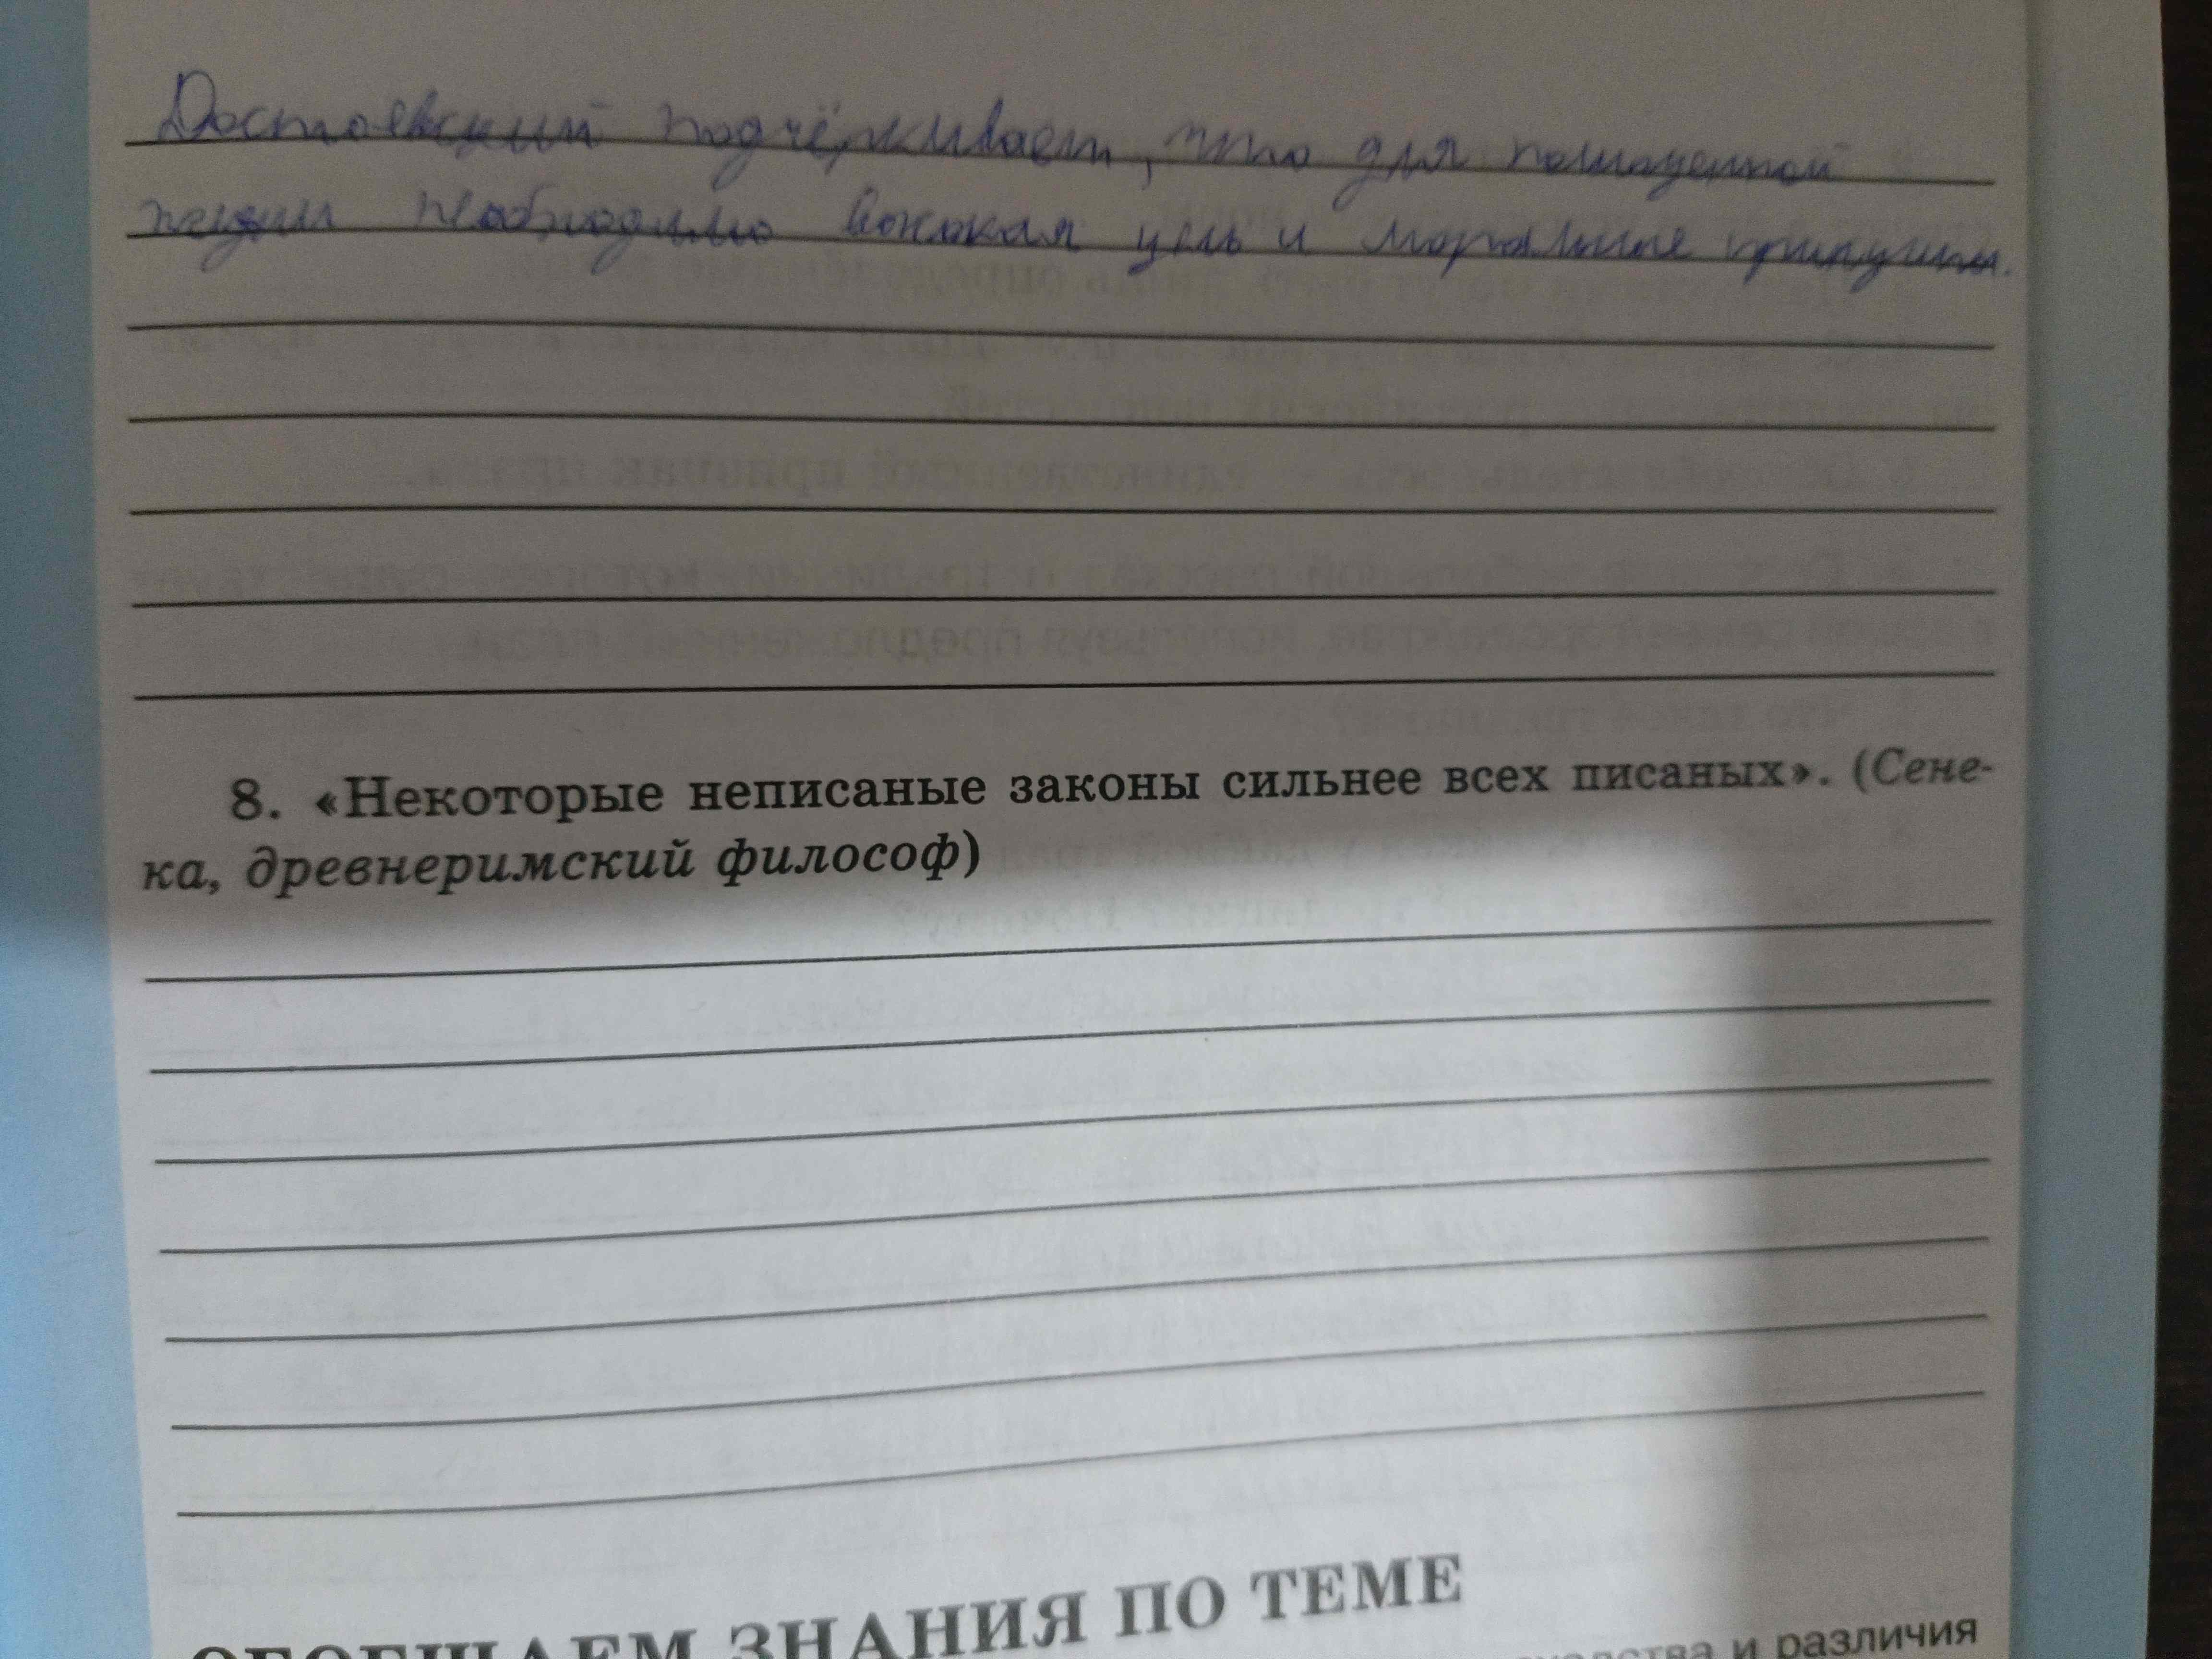 Достоевский подчёркивает, что для полноценной
жизни необходимо высокая цель и моральные принципы.
8. «Некоторые неписаные законы сильнее всех писаных». (Сене-
ка, древнеримский философ)
ОБОБЩАЕМ ЗНАНИЯ ПО ТЕМЕ
и различия